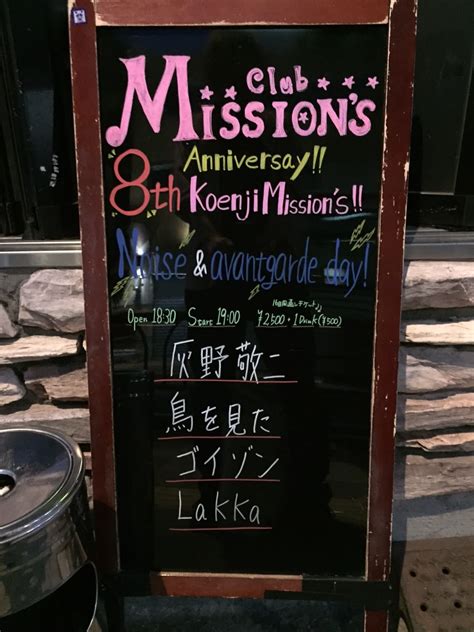 Club
MISSION'S
Anniversay!!
8th Koenji Mission's!!
Noise & avantgarde day!
Open 18:30 Start 19:00 ¥2500・1Drink(¥500)
灰野敬二
鳥を見た
ゴイゾン
Lakka